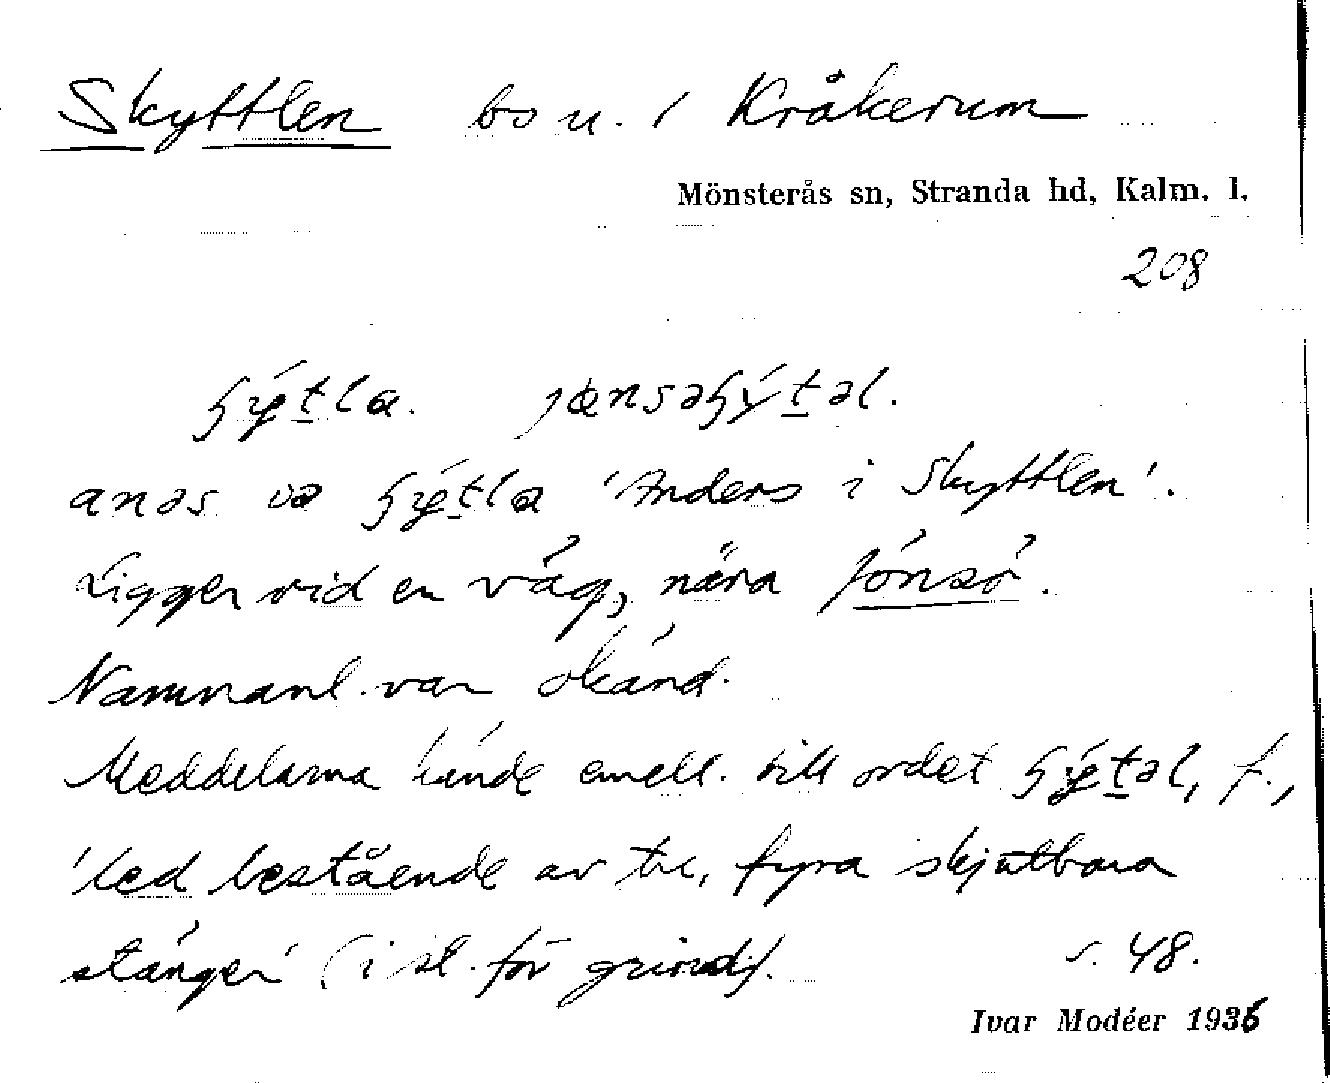 Skyttlen bs u. / Kråkerum
Mönsterås sn, Stranda hd, Kalm. l.
208
'Anders i Skyttlen'.
Ligger vid en väg, nära Jónsö.
Namnanl. var okänd.
Meddelarna kände emell. till ordet f.,
'led bestående av tre, fyra skjutbara
stänger' (i st. för grind).
s. 48.
Ivar Modéer 1936